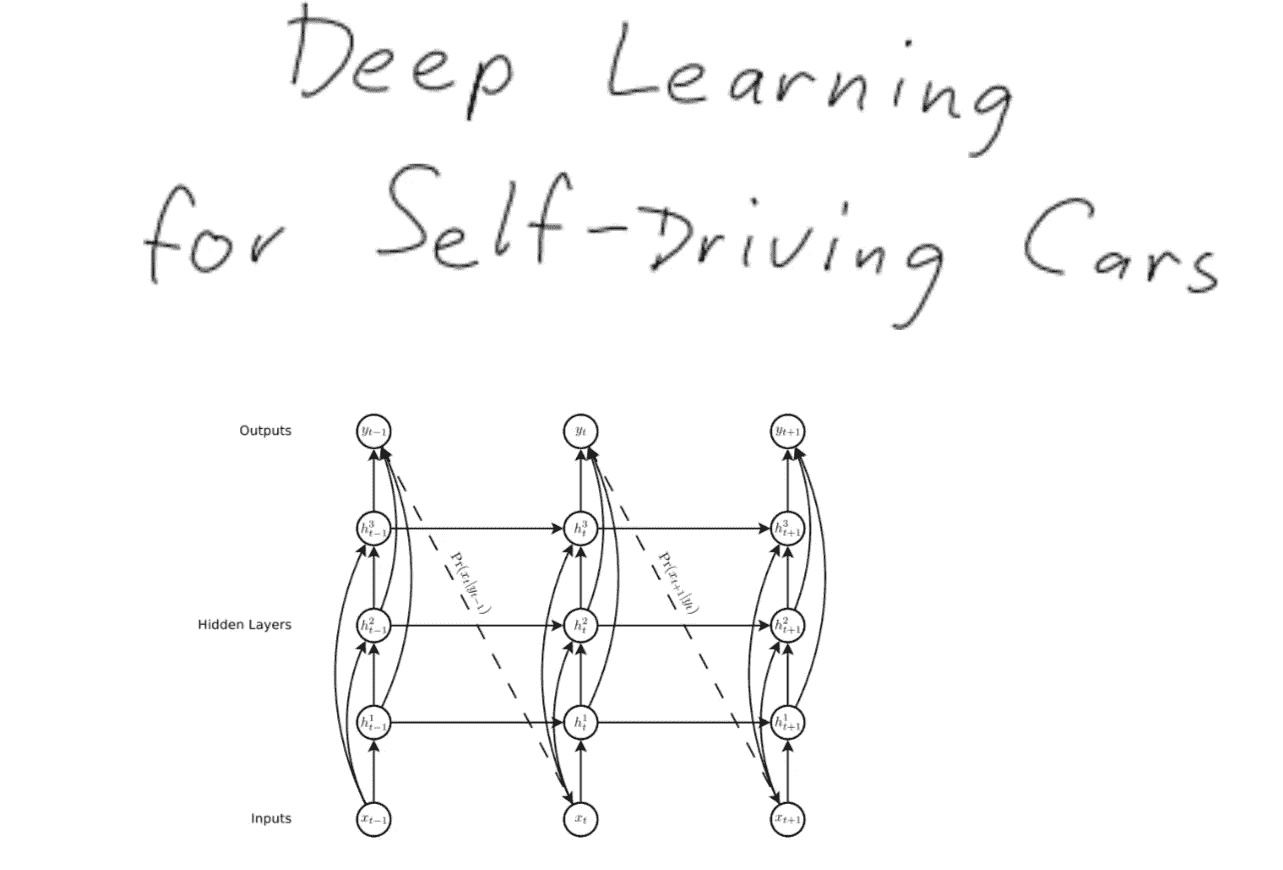 Deep Learning
for Self-Driving Cars
Outputs
y_{t−1} y_t y_{t+1}
h^3_{t−1} h^3_t h^3_{t+1}
Pr(x_t|y_{t−1}) Pr(x_{t+1}|y_t)
Hidden Layers
h^2_{t−1} h^2_t h^2_{t+1}
h^1_{t−1} h^1_t h^1_{t+1}
Inputs
x_{t−1} x_t x_{t+1}